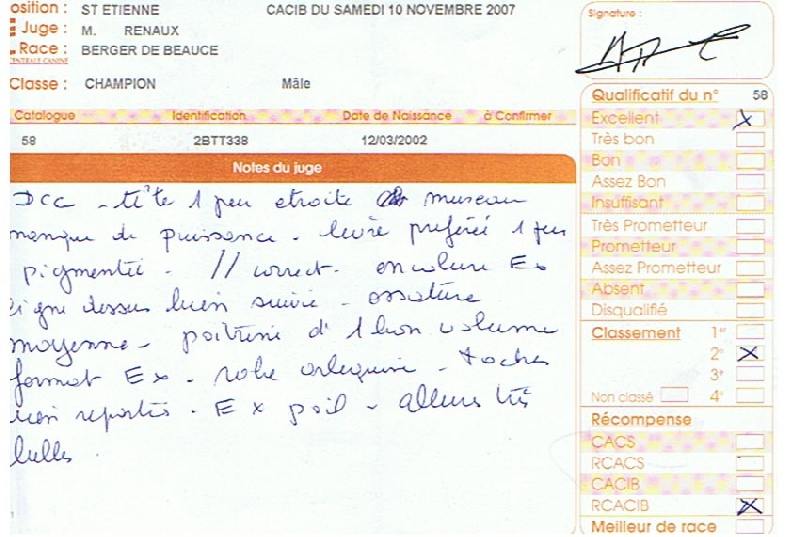 osition : ST ETIENNE CACIB DU SAMEDI 10 NOVEMBRE 2007
Juge : M. RENAUX
Race : BERGER DE BEAUCE
CENTRALE CANINE
Classe : CHAMPION Mâle
Catalogue Identification Date de Naissance à Confirmer
58 2BTT338 12/03/2002
Notes du juge
Dcc - tête 1 peu etroite museau
manque de puissance - levre préférée 1 peu
pigmentée - // correct - encolure Ex
ligne dessus bien suivie - ossature
moyenne - poitrine d' 1 bon volume
format Ex - robe arlequine - taches
bien reparties - Ex poil - allures très
belles
Signature :
Qualificatif du n° 58
Excellent X
Très bon
Bon
Assez Bon
Insuffisant
Très Prometteur
Prometteur
Assez Prometteur
Absent
Disqualifié
Classement 1°
2° X
3°
Non classé 4°
Récompense
CACS
RCACS
CACIB
RCACIB X
Meilleur de race